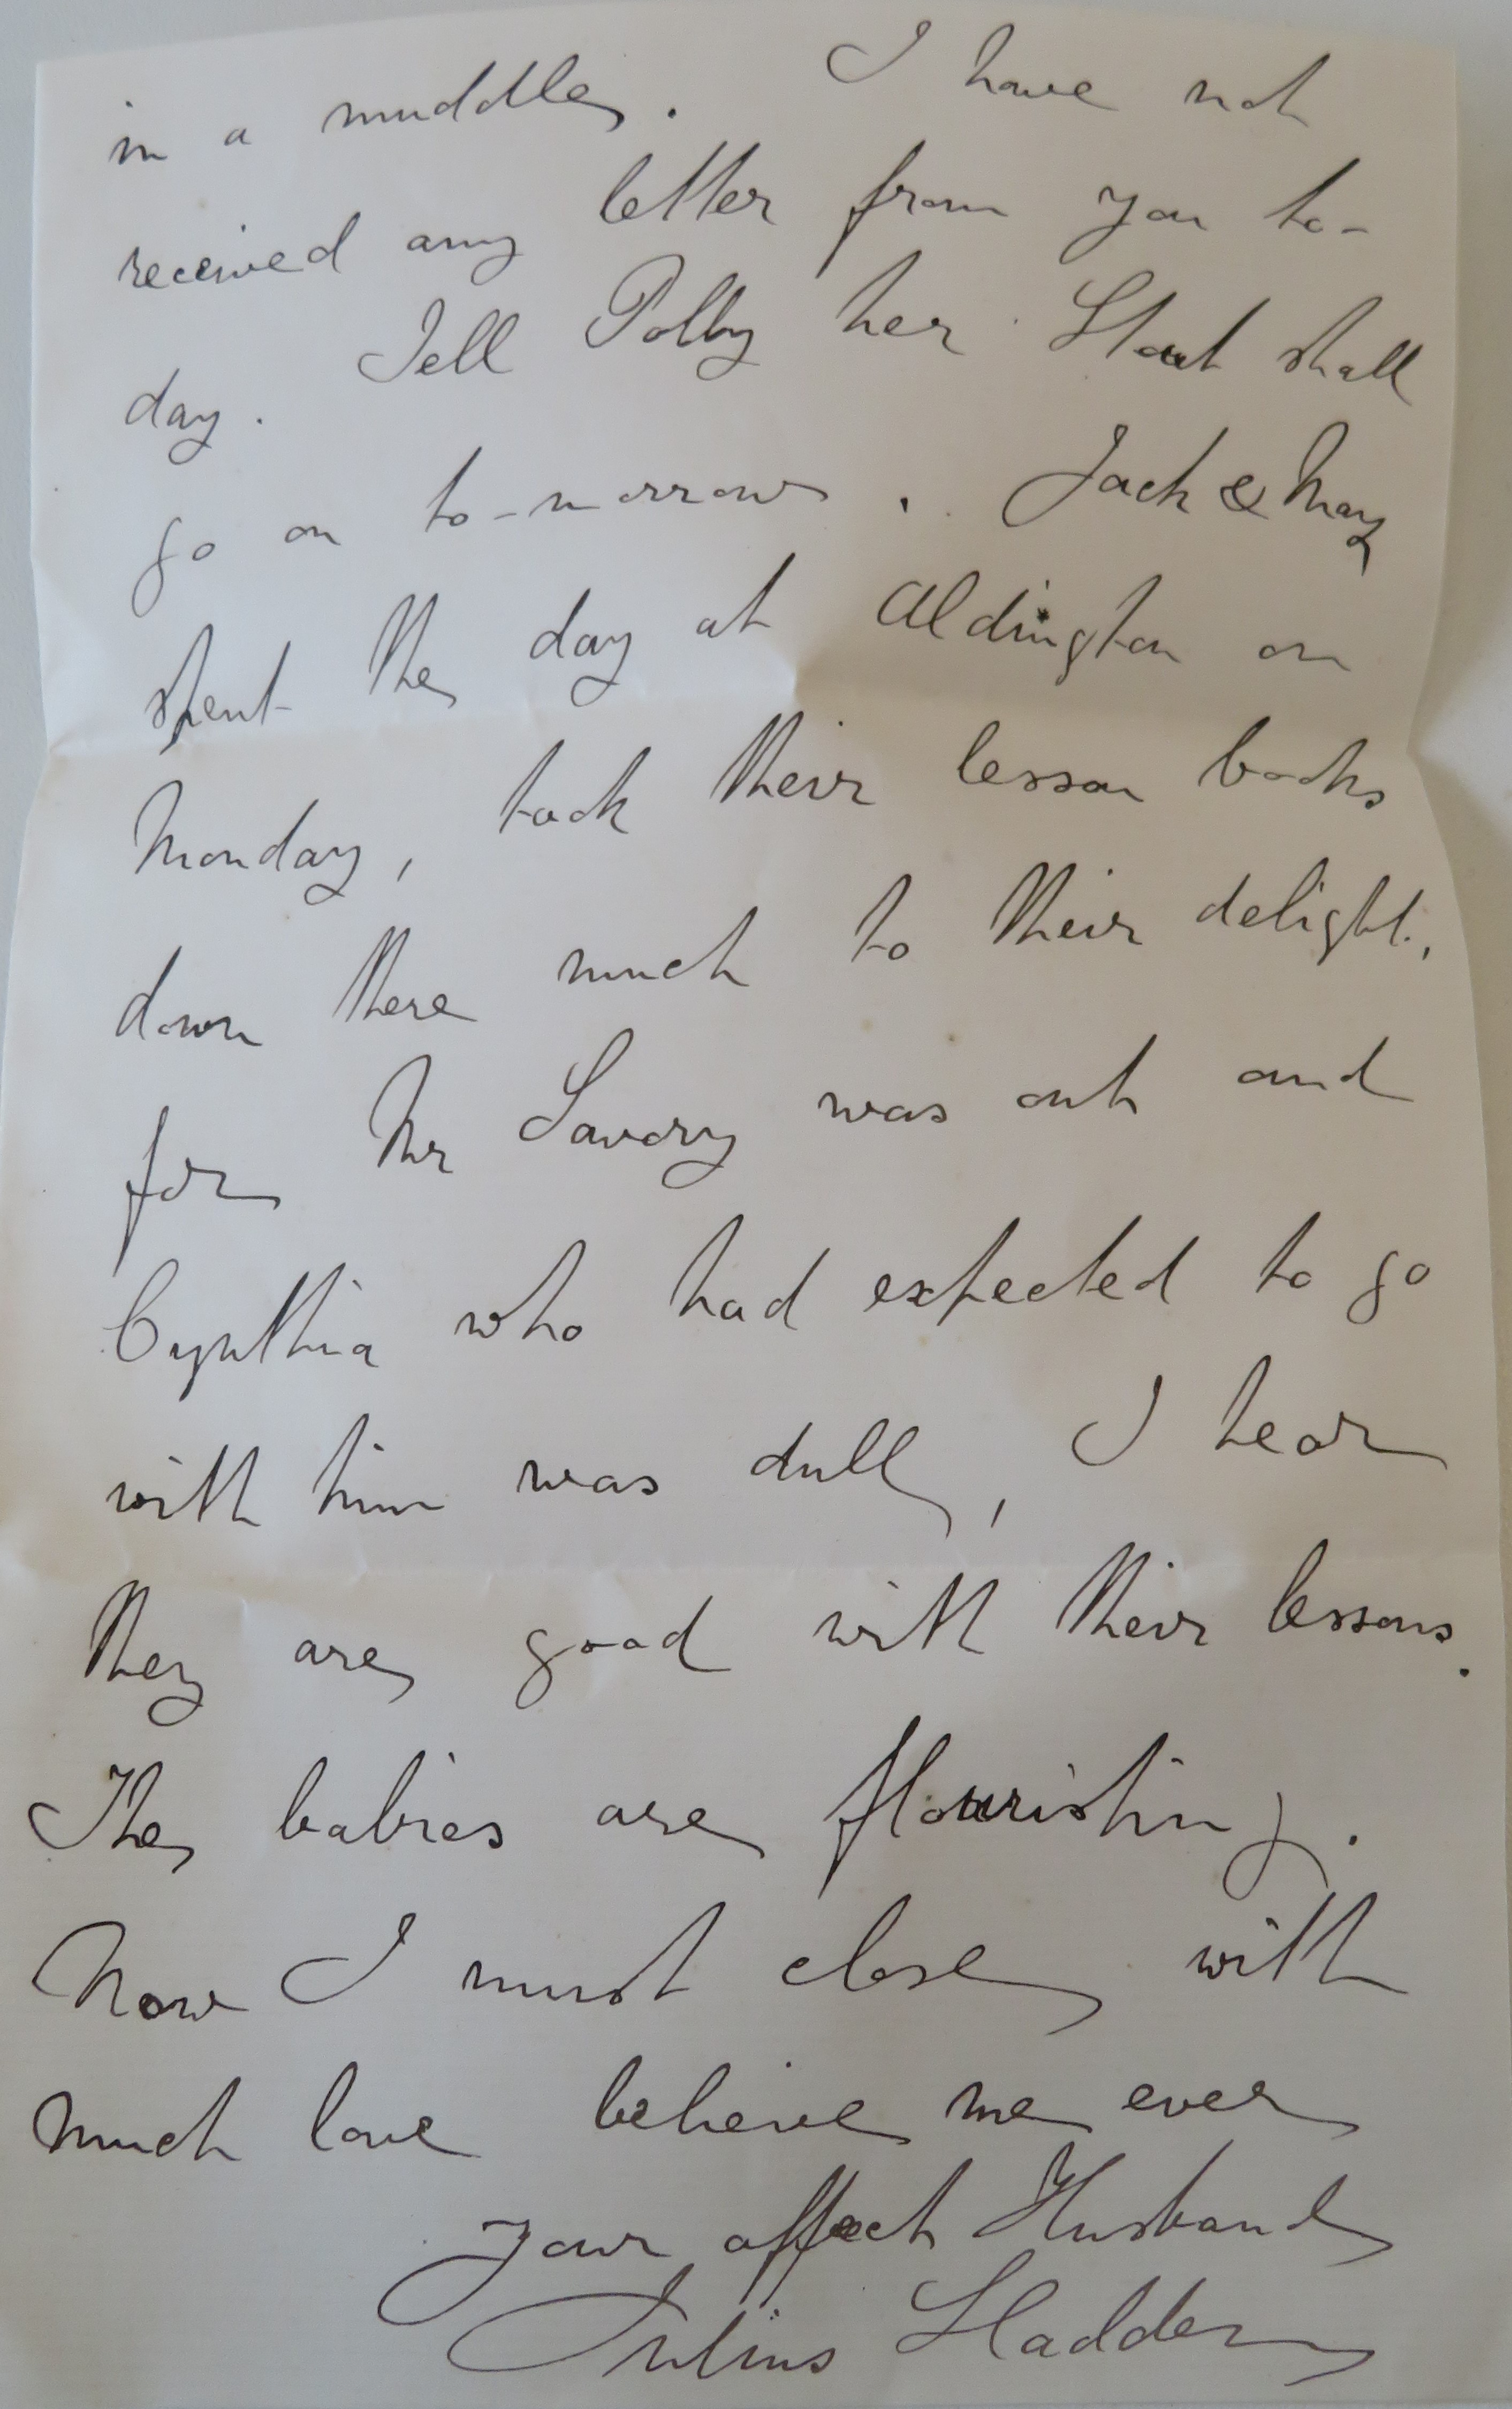 in a muddle. I have not
received any letter from you to-
day. Tell Polly her Stout shall
go on to-morrow. Jack & May
spent the day at Aldington on
Monday, took their lesson books
down there much to their delight,
for Mr Savory was out and
Cynthia who had expected to go
with him was dull, I hear
they are good with their lessons.
The babies are flourishing.
Now I must close with
much love believe me ever
your affect Husband
Julius Sladden